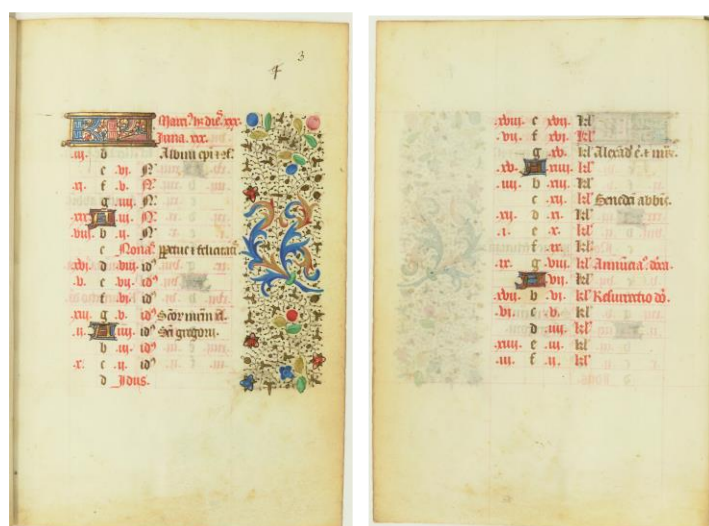 3
4
Marciꝰ hꝫ dies xxx
luna. xxx.
.iij. d Albini epi ⁊ ꝯf.
e .vi. Nꝰ
.xi. f .v. Nꝰ
g .iiij. Nꝰ
.xix. A .iij. Nꝰ
.viij. b .ij. Nꝰ
c Nonas. ꝑpetue ⁊ felicitatis
.xvi. d .viij. idꝰ
.v. e .vij. idꝰ
f .vi. idꝰ
.xiij. g .v. idꝰ
.ij. A .iiij. idꝰ Sci gregorij.
b .iij. idꝰ
.x. c .ij. idꝰ
d Idus.
.xviij. e .xvij. kl'
.vij. f .xvi. kl'
g .xv. kl'
.xv. A .xiiij. kl'
.iiij. b .xiij. kl'
c .xij. kl' Benedci abbis.
.xij. d .xi. kl'
.i. e .x. kl'
f .ix. kl'
.ix. g .viij. kl' Annūcia° dn̄ica.
A .vij. kl'
.xvij. b .vi. kl' Resurrectio dn̄i.
.vi. c .v. kl'
d .iiij. kl'
.xiiij. e .iij. kl'
.iij. f .ij. kl'